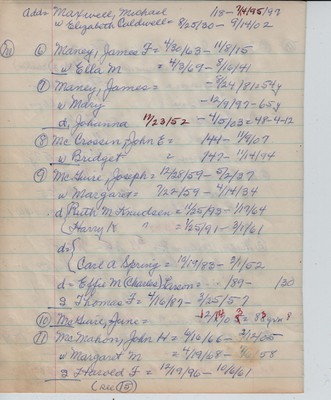 Add= Maxwell, Michael 1/18- 7/4/95/97
w Elizabeth Caldwell= 8/25/30- 9/14/02
⑥ Maney, James F= 4/30/63- 11/8/15
w Ella M = 4/9/69- 8/16/41
⑦ Maney, James= -8/24/81=54y
w Mary -12/9/97-65y
d, Johanna 11/23/52 - 4/5/03=48-4-12
⑧ Mc Crossin, John E= 1844- 11/9/07
w Bridget = 1847- 1/14/94
⑨ McGuire, Joseph= 12/28/59- 5/2/37
w Margaret= 7/22/59- 4/14/34
d { Ruth M Knudsen= 11/25/93- 1/19/64
Harry K " = 1/25/91- 3/1/61
d= {
Carl A Spring= 12/19/83- 2/1/52
d= Effie M (Charles) = /89- /30
s Thomas F= 4/16/89- 3/25/57
⑩ McGuire, Jane=
⑪ McMahon, John H= 4/16/66- 2/12/05
w Margaret M = 4/19/68- /58
s Harold F= 12/19/96- 10/6/61
(see ⑮)